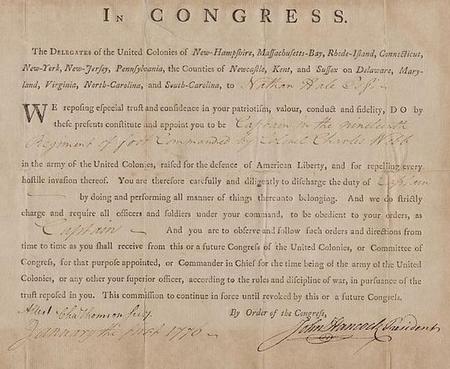 IN CONGRESS.
The DELEGATES of the United Colonies of New-Hampshire, Massachusetts-Bay, Rhode-Island, Connecticut,
New-York, New-Jersey, Pennsylvania, the Counties of Newcastle, Kent, and Sussex on Delaware, Mary-
land, Virginia, North-Carolina, and South-Carolina, to Nathan Hale Esqr
WE reposing especial trust and confidence in your patriotism, valour, conduct and fidelity, DO by
these presents constitute and appoint you to be Captain in the nineteenth
Regiment of foot Commanded by Colonel Charles Webb
in the army of the United Colonies, raised for the defence of American Liberty, and for repelling every
hostile invasion thereof. You are therefore carefully and diligently to discharge the duty of Captain
by doing and performing all manner of things thereunto belonging. And we do strictly
charge and require all officers and soldiers under your command, to be obedient to your orders, as
Captain And you are to observe and follow such orders and directions from
time to time as you shall receive from this or a future Congress of the United Colonies, or Committee of
Congress, for that purpose appointed, or Commander in Chief for the time being of the army of the United
Colonies, or any other your superior officer, according to the rules and discipline of war, in pursuance of the
trust reposed in you. This commission to continue in force until revoked by this or a future Congress.
By Order of the Congress,
Attest Cha Thomson secy
January the first 1776 John Hancock President